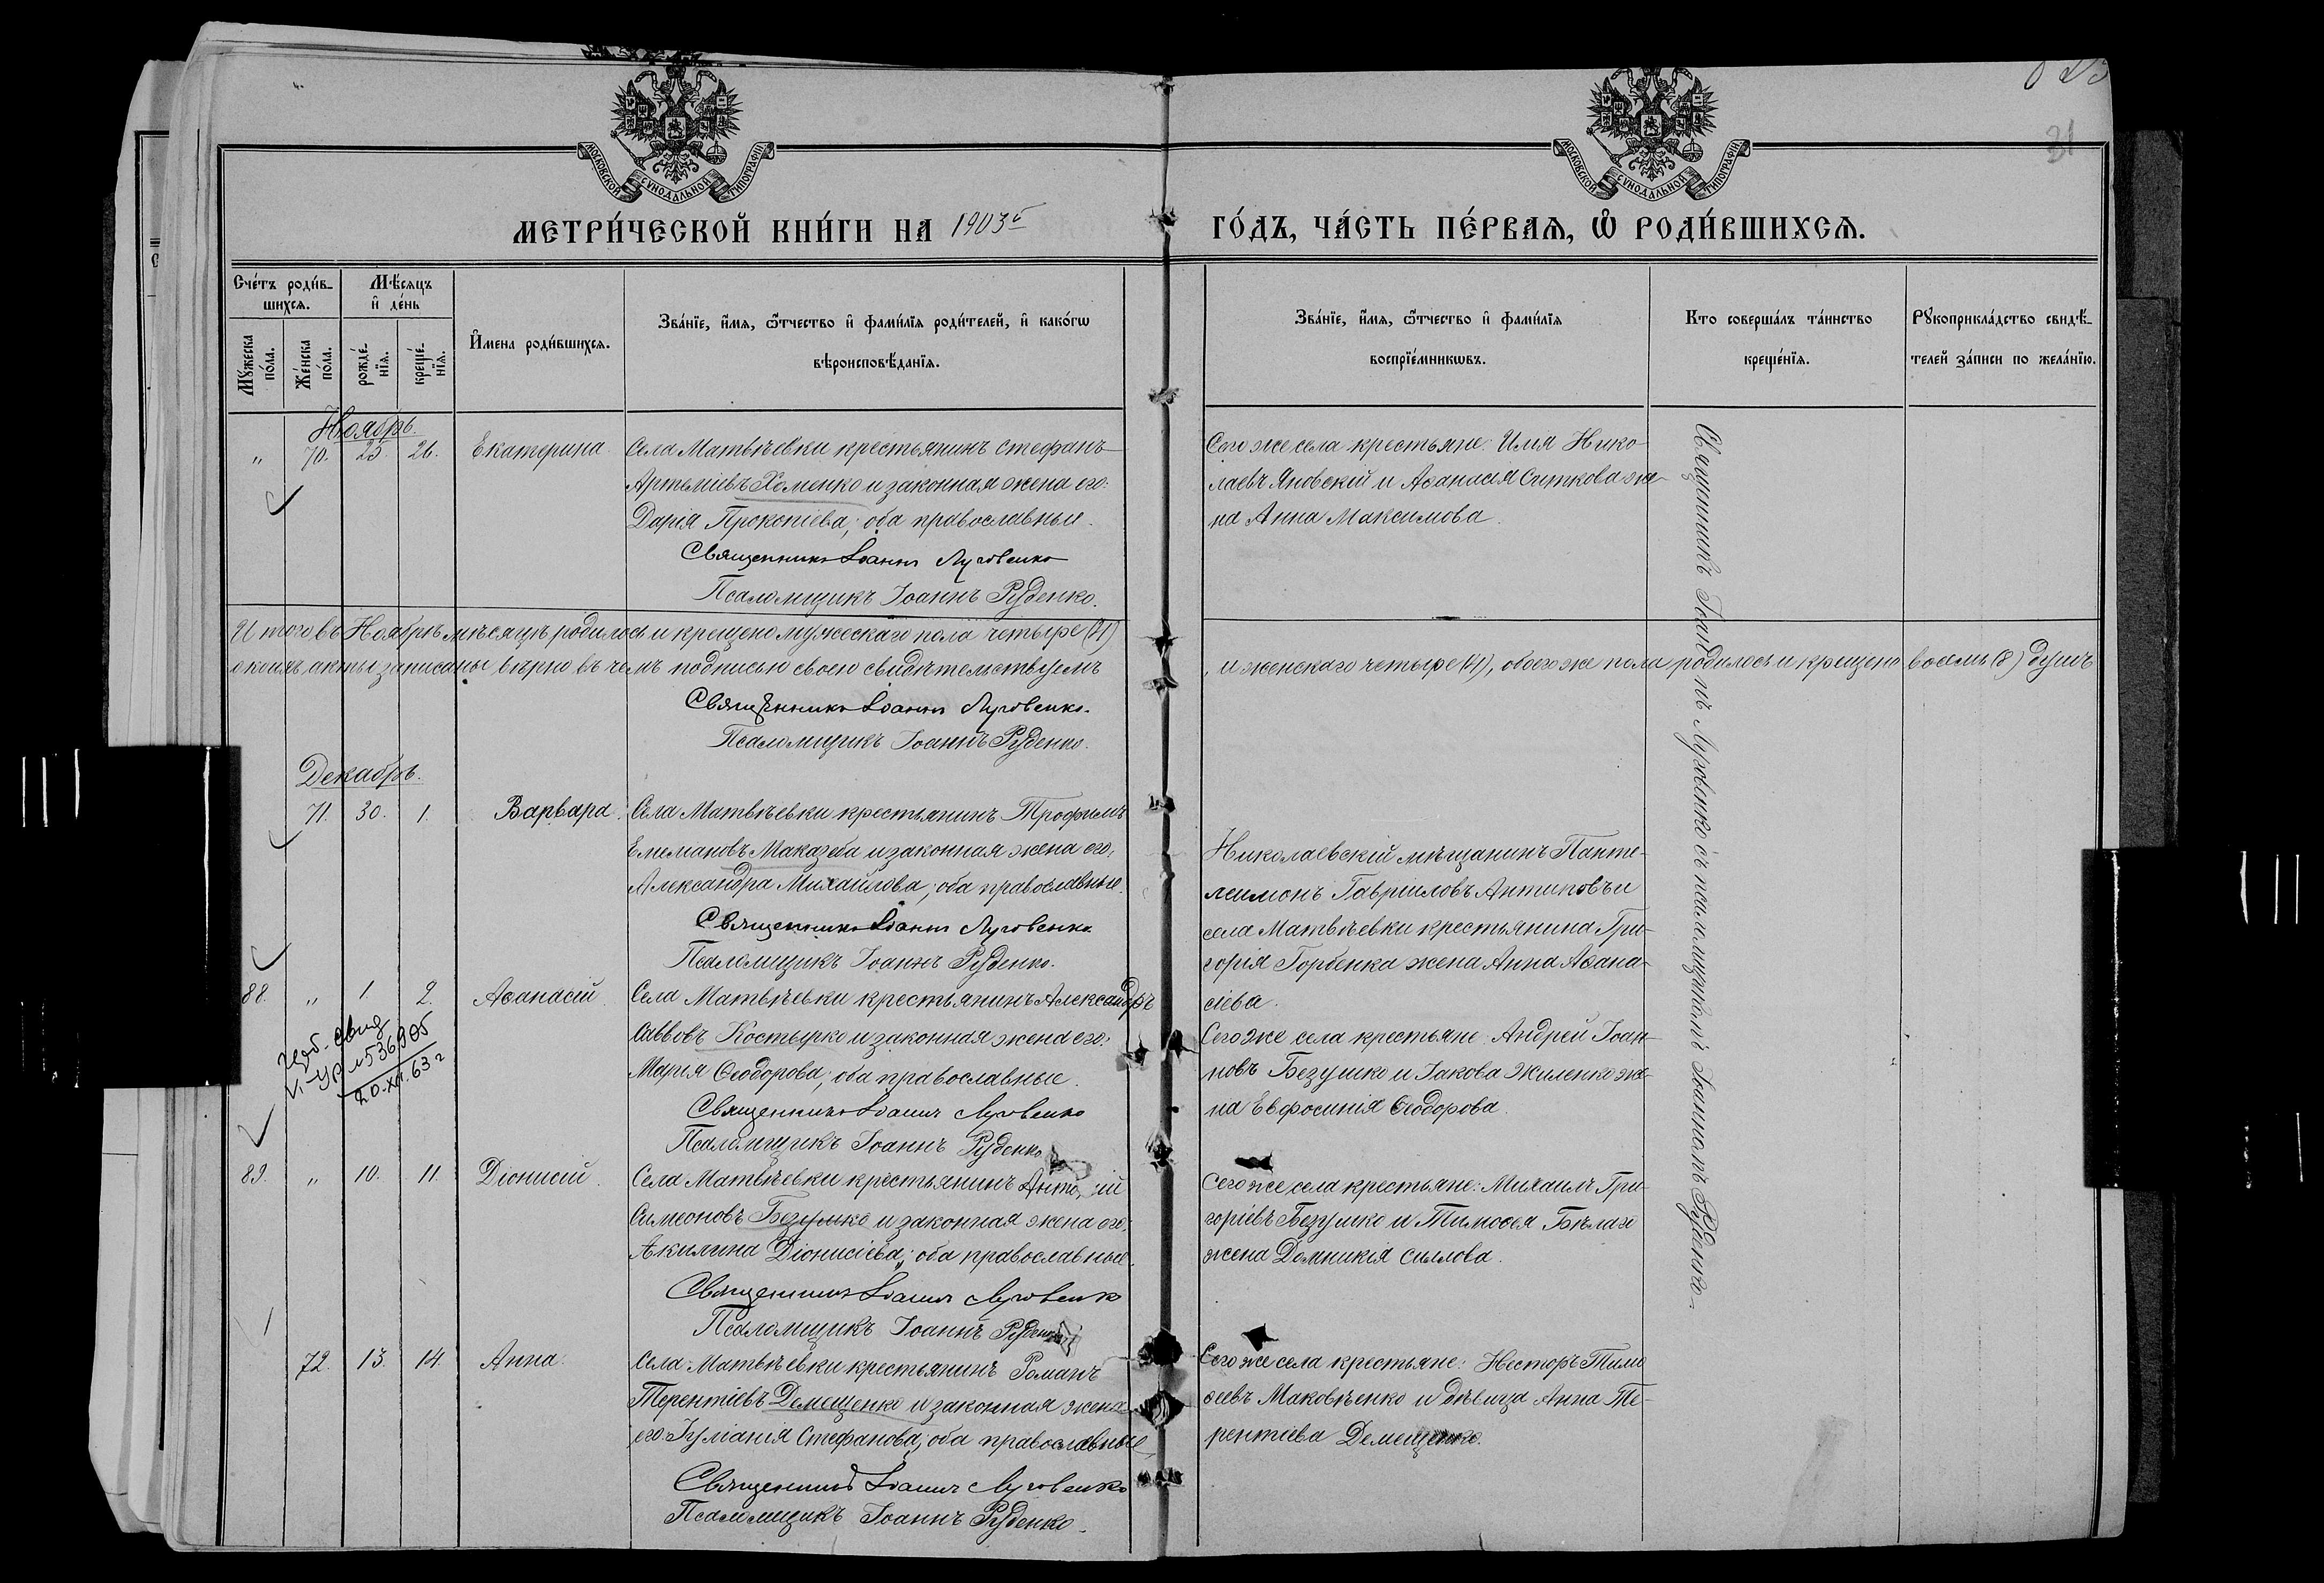 МОСКОВСКОЙ СУНОДАЛЬНОЙ ТИПОГРАФІИ
МОСКОВСКОЙ СУНОДАЛЬНОЙ ТИПОГРАФІИ
31
МЕТРИ́ЧЕСКОЙ КНИ́ГИ НА 1903й ГО́ДЪ, ЧА́СТЬ ПЕ́РВАѦ, Ѡ РОДИ́ВШИХСѦ.
Сче́тъ роди́в-
шихсѧ.
Мѣ́сѧцъ
и҆ де́нь
Мꙋ́жеска по́ла.
Же́нска по́ла.
рожде́-
нїѧ.
креще́-
нїѧ.
И҆мена роди́вшихсѧ.
Зва́нїе, и҆́мѧ, ѻ҆́тчество и҆ фами́лїѧ роди́телей, и҆ како́гѡ
вѣроисповѣ́данїѧ.
Зва́нїе, и҆́мѧ, ѻ҆́тчество и҆ фами́лїѧ
воспрїе́мникѡвъ.
Кто соверша́лъ та́инство
креще́нїѧ.
Рꙋкоприкла́дство свидѣ́-
телей за́писи по жела́нїю.
Ноябрь.
" 70. 25. 26. Екатерина. Села Матвѣевки крестьянинъ Стефанъ
Артеміевъ Хоменко и законная жена его:
Дарія Прокопіева, оба православные.
Священникъ Іоаннъ Луговенко
Псаломщикъ Іоаннъ Руденко.
Сего же села крестьяне: Илія Нико-
лаевъ Яновскій и Аѳанасія Сыткова же-
на Анна Максимова.
Священникъ Іоаннъ Луговенко съ псаломщикомъ Іоанномъ Руденко.
Итого въ Ноябрѣ мѣсяцѣ родилось и крещено мужескаго пола четыре (4), и женскаго четыре (4), обоего же пола родилось и крещено восемь (8) душъ
о коихъ акты записаны вѣрно въ чемъ подписью своею свидѣтельствуемъ
Священникъ Іоаннъ Луговенко.
Псаломщикъ Іоаннъ Руденко.
Декабрь.
71. 30. 1. Варвара. Села Матвѣевки крестьянинъ Трофимъ
Емельяновъ и законная жена его:
Александра Михайлова, оба православные.
Священникъ Іоаннъ Луговенко
Псаломщикъ Іоаннъ Руденко.
Николаевскій мѣщанинъ Панте-
леимонъ Гавріиловъ Антиповъ и
села Матвѣевки крестьянина Гри-
горія Горбенка жена Анна Аѳана-
сіева.
88. " 1. 2. Аѳанасій. Села Матвѣевки крестьянинъ Александръ
Саввовъ Костырко и законная жена его:
Марія Ѳеодорова, оба православные.
Священникъ Іоаннъ Луговенко
Псаломщикъ Іоаннъ Руденко
свид
536905
20.XII.63 г
Сего же села крестьяне: Андрей Іоан-
новъ Безушко и Іакова Жиленко же-
на Евфросинія Ѳеодорова.
89. " 10. 11. Діонисій. Села Матвѣевки крестьянинъ Анто ій
Симеоновъ Безушко и законная жена его:
Акилина Діонисіева, оба православные.
Священникъ Іоаннъ Луговенко
Псаломщикъ Іоаннъ Руденко
Сего же села крестьяне: Михаилъ Гри-
горіевъ Безушко и Тимоѳея Бѣлаго
жена Домникія
72. 13. 14. Анна. Села Матвѣевки крестьянинъ Романъ
Терентіевъ Демещенко и законная жена
его: Іуліанія Стефанова, оба православные
Священникъ Іоаннъ Луговенко
Псаломщикъ Іоаннъ Руденко.
Сего же села крестьяне: Несторъ Тимо
ѳеевъ Маковѣенко и дѣвица Анна Те-
рентіева Демещенко.